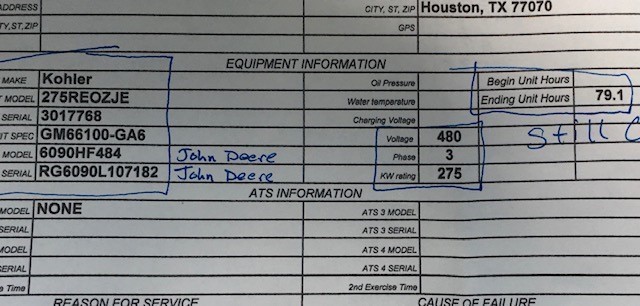 ADDRESS CITY, ST, ZIP Houston, TX 77070
TY,ST,ZIP GPS
EQUIPMENT INFORMATION
MAKE Kohler Oil Pressure Begin Unit Hours
MODEL 275REOZJE Water temperature Ending Unit Hours 79.1
SERIAL 3017768 Charging Voltage
IT SPEC GM66100-GA6 Voltage 480 Still
MODEL 6090HF484 John Deere Phase 3
SERIAL RG6090L107182 John Deere KW rating 275
ATS INFORMATION
MODEL NONE ATS 3 MODEL
SERIAL ATS 3 SERIAL
MODEL ATS 4 MODEL
SERIAL ATS 4 SERIAL
e Time 2nd Exercise Time
REASON FOR SERVICE CAUSE OF FAILURE